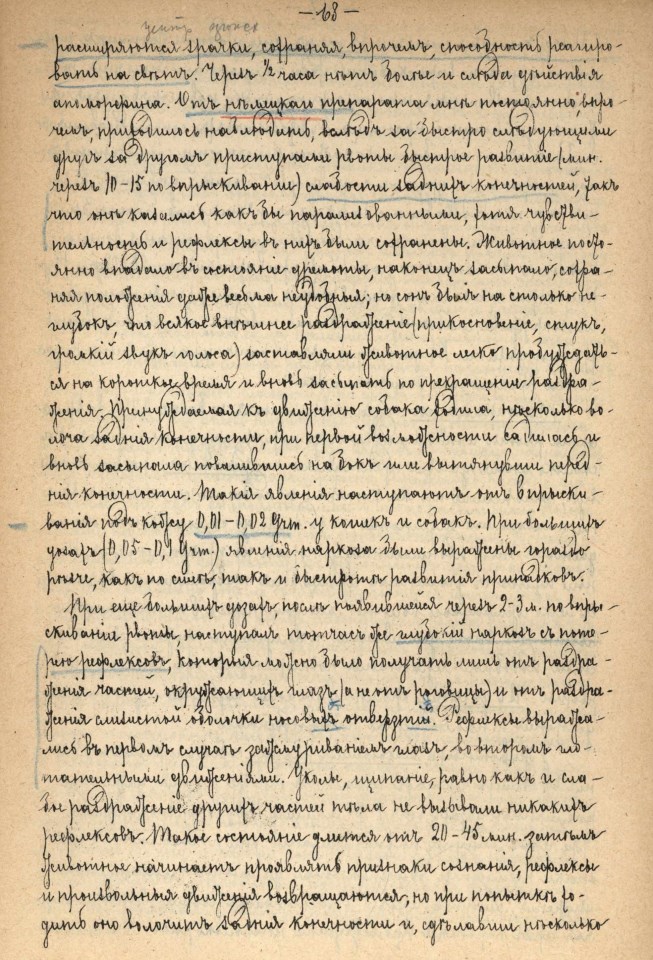 — 68 —
расширяются зрачки, сохраняя, впрочемъ, способность реагиро-
вать на свѣтъ. Черезъ 1/2 часа нѣтъ болѣе и слѣда дѣйствія
апоморфина. Отъ нѣмецкаго препарата мнѣ постоянно, впро-
чемъ, приходилось наблюдать, вслѣдъ за быстро слѣдующими
другъ за другомъ приступами рвоты быстрое развитіе (мин.
черезъ 10-15 по впрыскиваніи) слабости заднихъ конечностей, такъ
что онѣ казались какъ бы парализованными, хотя чувстви-
тельность и рефлексы въ нихъ были сохранены. Животное посто-
янно впадало въ состояніе дремоты, наконецъ засыпало, сохра-
няя положенія даже весьма неудобныя; но сонъ былъ на столько не-
глубокъ, что всякое внѣшнее раздраженіе (прикосновеніе, стукъ,
громкій звукъ голоса) заставляли животное легко пробуждать-
ся на короткое время и вновь засыпать по прекращеніи раздра-
женія. Принуждаемая къ движенію собака ходила, нѣсколько во-
лоча заднія конечности, при первой возможности садилась и
вновь засыпала повалившись на бокъ или вытянувши перед-
нія конечности. Такія явленія наступаютъ отъ впрыски-
ванія подъ кожу 0,01-0,02 Grm. у кошекъ и собакъ. При большихъ
дозахъ (0,05-0,1 Grm.) явленія наркоза были выражены гораздо
рѣзче, какъ по силѣ, такъ и быстротѣ развитія припадковъ.
При еще большихъ дозахъ, послѣ появившейся черезъ 2-3 м. по впры-
скиваніи рвоты, наступалъ тотчасъ же глубокій наркозъ съ поте-
рею рефлексовъ, которые можно было получать лишь отъ раздра-
женія частей, окружающихъ глазъ (а не отъ роговицы) и отъ раздра-
женія слизистой оболочки носовыхъ отверзтій. Рефлексы выража-
лись въ первомъ случаѣ зажмуриваніемъ глазъ, во второмъ гло-
тательными движеніями. Уколы, щипаніе, равно какъ и сла-
бое раздраженіе другихъ частей тѣла не вызывали никакихъ
рефлексовъ. Такое состояніе длится отъ 20-45 мин. затѣмъ
животное начинаетъ проявлять признаки сознанія, рефлексы
и произвольныя движенія возвращаются, но при попыткѣ хо-
дить оно волочитъ заднія конечности и, сдѣлавши нѣсколько